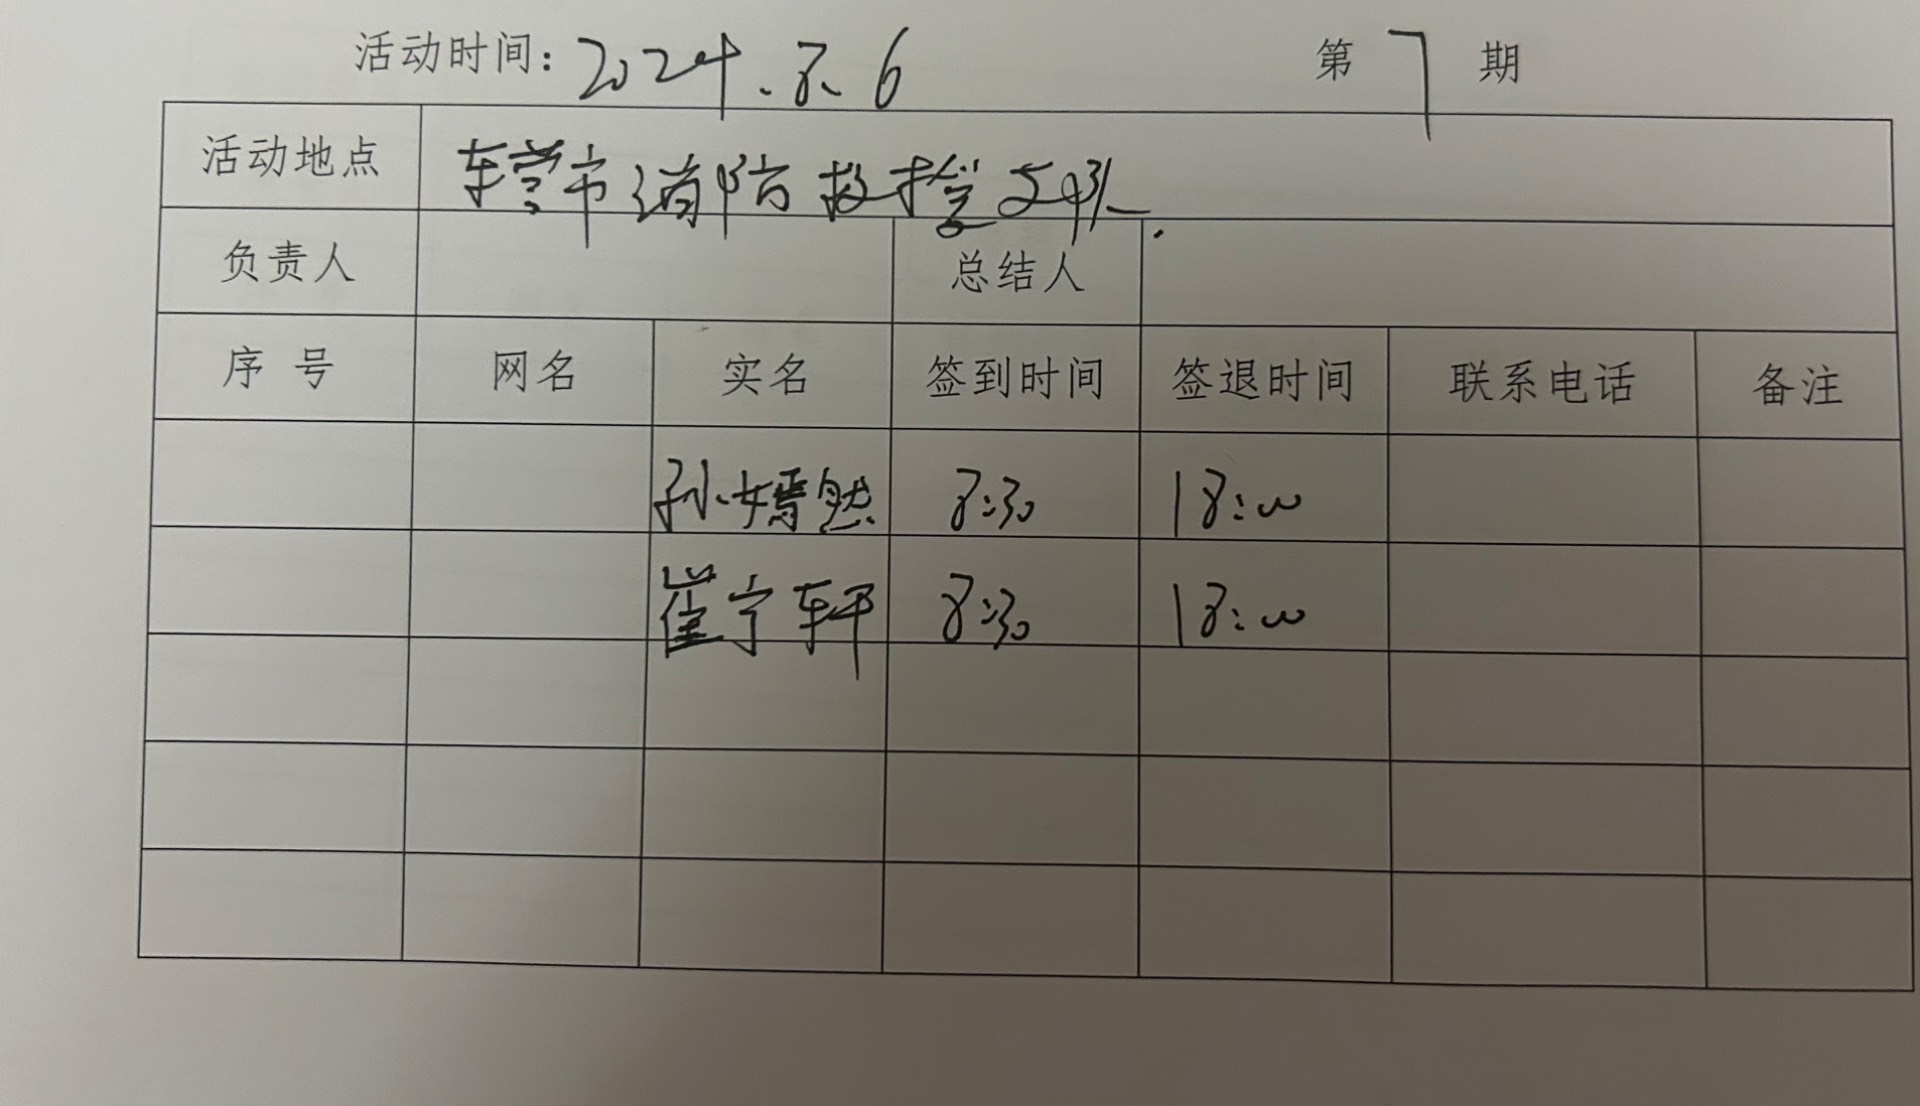 活动时间: 2024.8.6 第 7 期
活动地点 东营市消防救援支队.
负责人 总结人
序 号 网名 实名 签到时间 签退时间 联系电话 备注
孙嫣然 8:30 18:00
崔宁轩 8:30 18:00